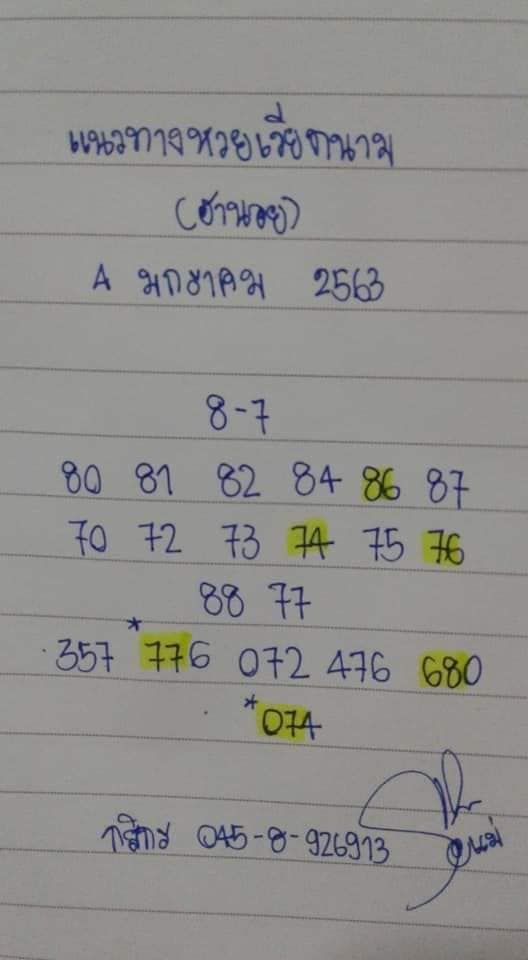 แนวทางหวยเวียดนาม
(ฮานอย)
4 มกราคม 2563
8-7
80 81 82 84 86 87
70 72 73 74 75 76
88 77
357 *776 072 476 680
*074
กสิกร 045-8-926913 แม่